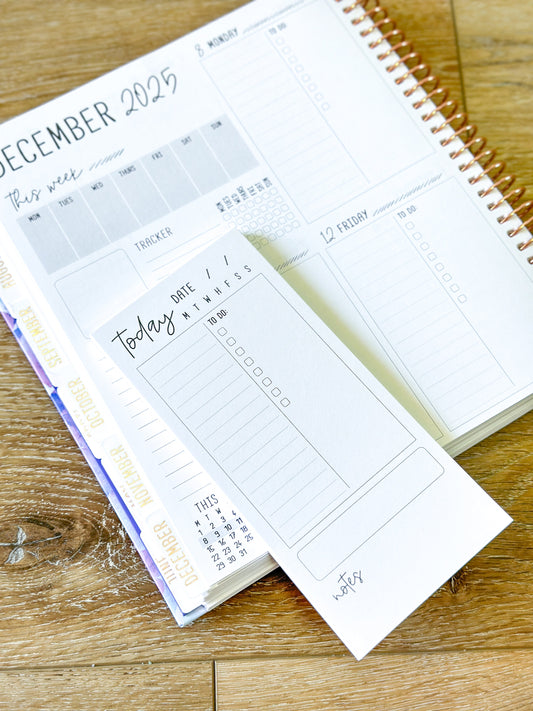 DECEMBER 2025
This week
MON TUES WED THURS FRI SAT SUN
TRACKER
8 MONDAY
TO DO:
12 FRIDAY
TO DO:
Today
DATE / /
M T W H F S S
TO DO:
notes
THIS
M T W
1 2 3 4
8 9 10 11
15 16 17 18
22 23 24 25
29 30 31
AUGUST
SEPTEMBER
OCTOBER
NOVEMBER
DECEMBER